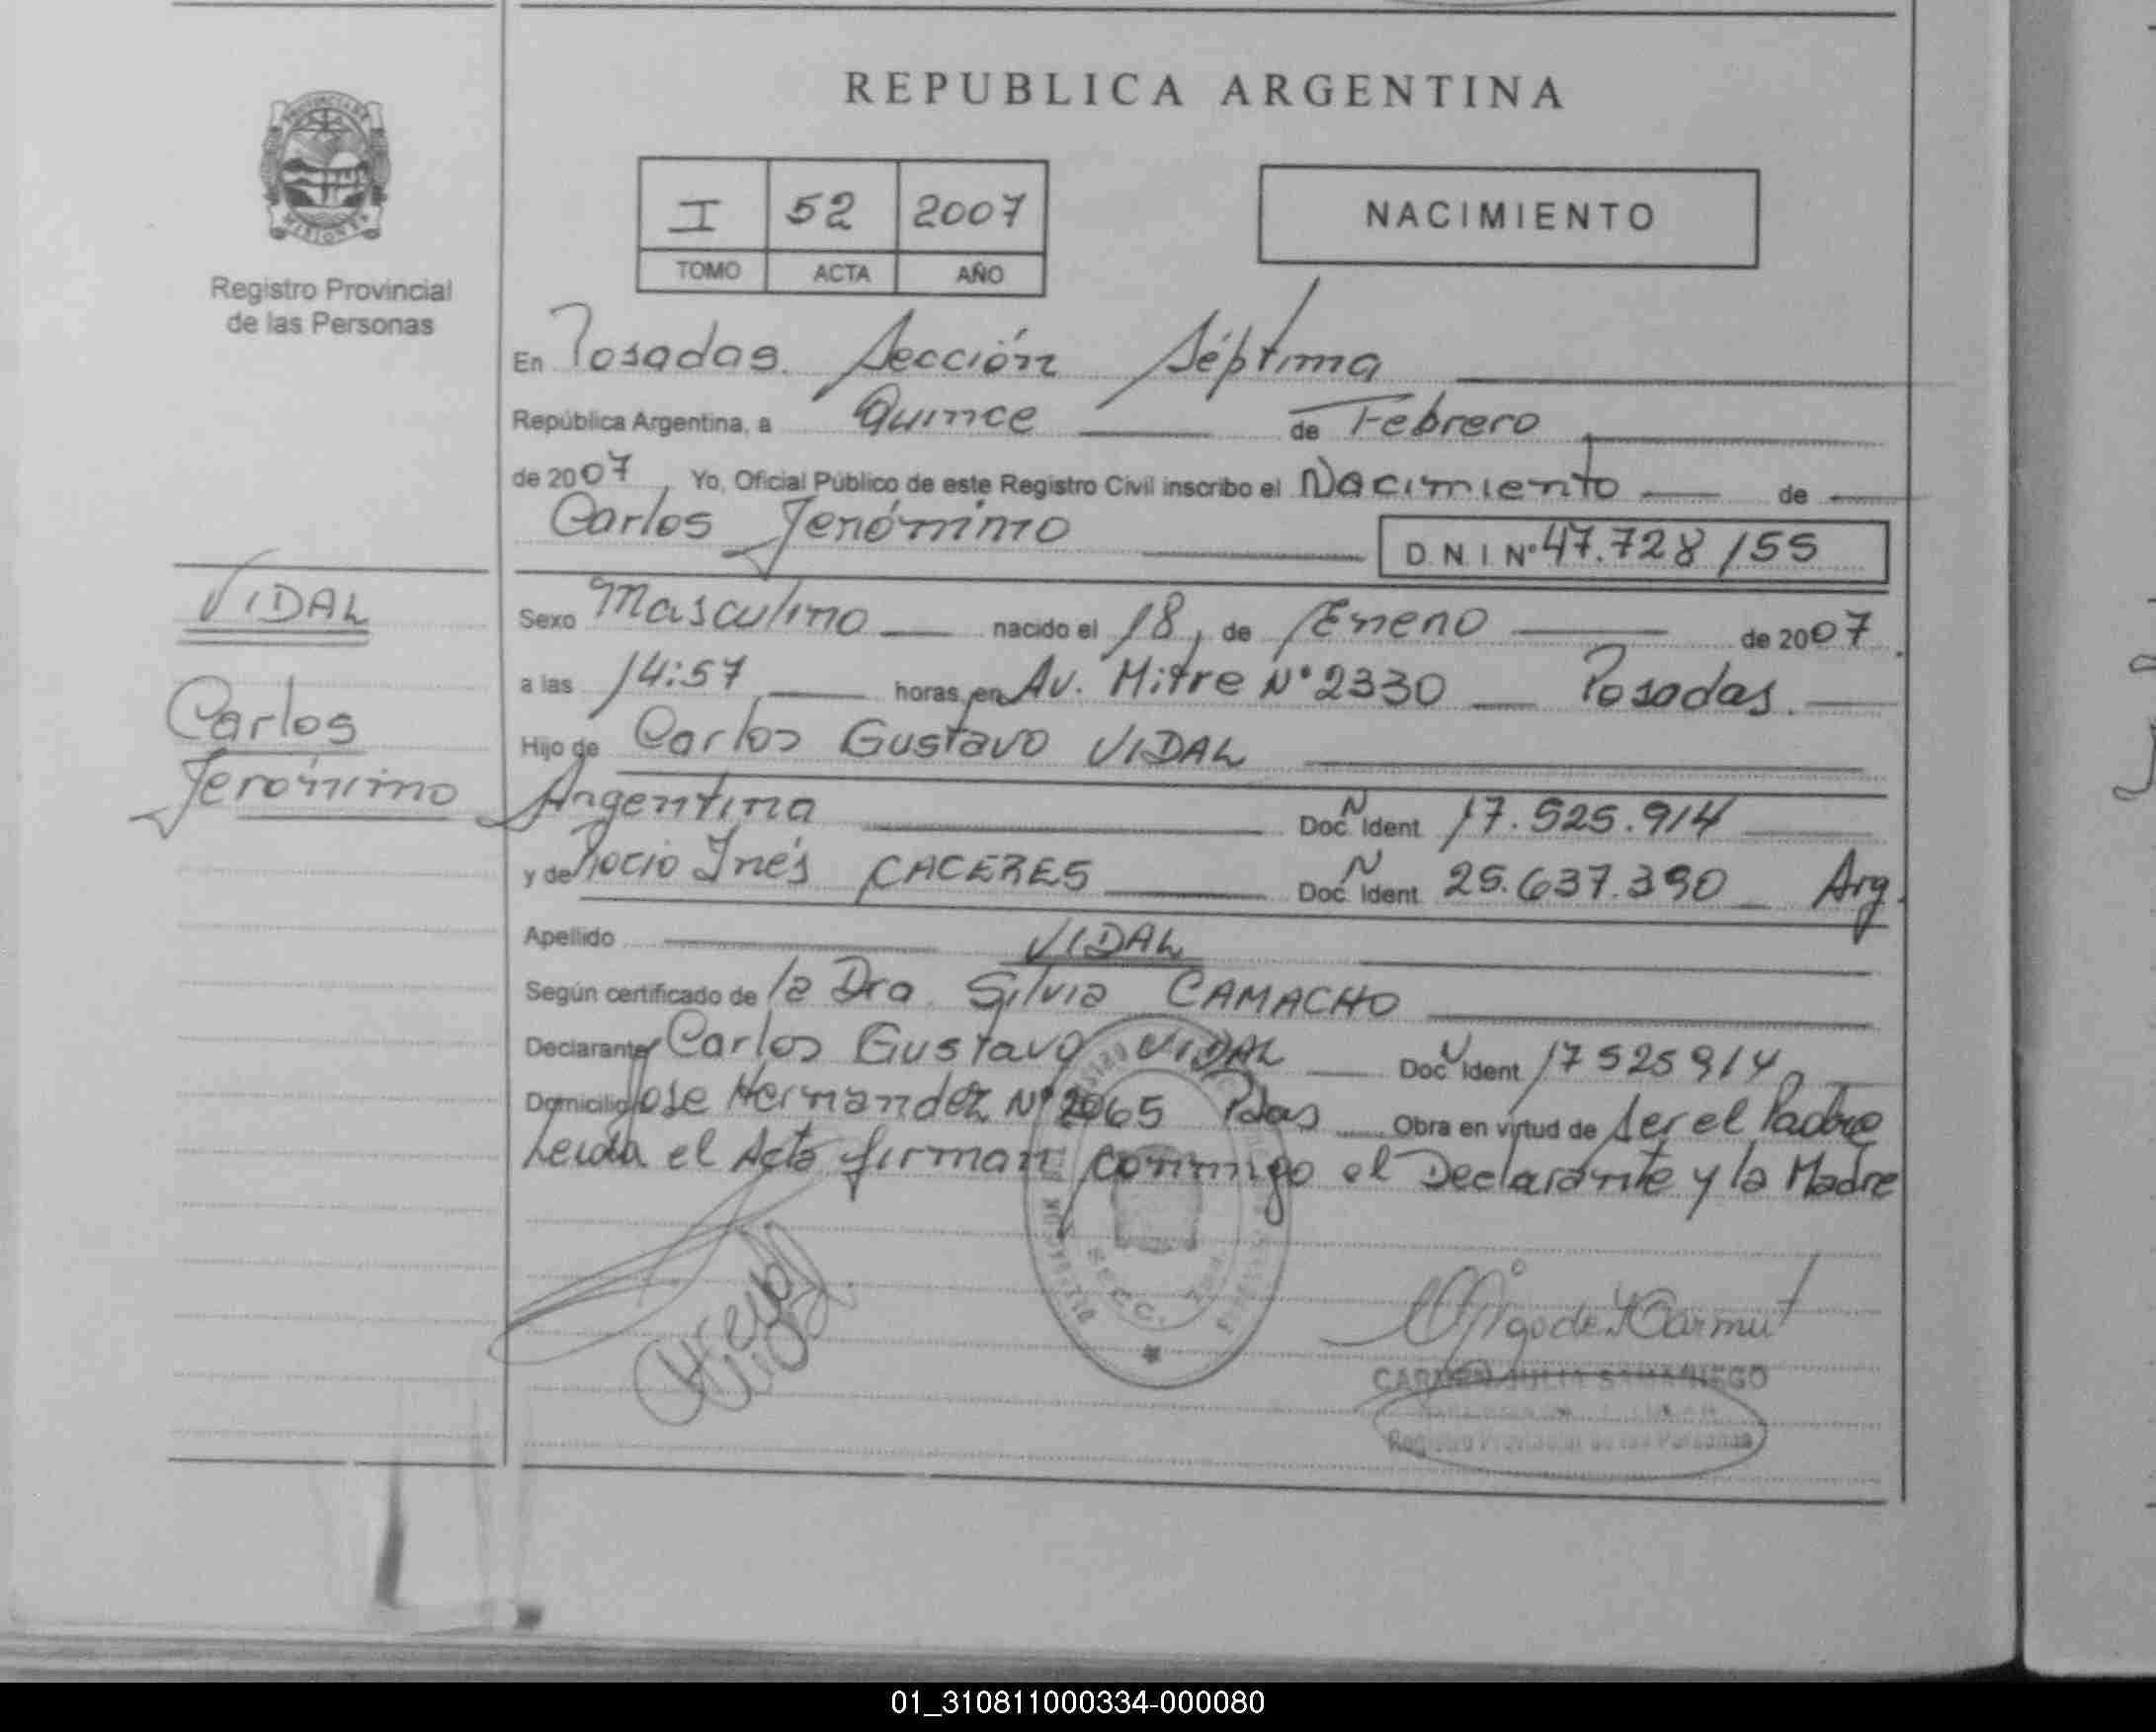 REPUBLICA ARGENTINA
PROVINCIA DE
MISIONES
Registro Provincial
de las Personas
I 52 2007
TOMO ACTA AÑO
NACIMIENTO
En Posadas. Sección Séptima
República Argentina, a Quince de Febrero
de 2007 Yo, Oficial Público de este Registro Civil inscribo el Nacimiento de
Carlos Jerónimo D.N.I. Nº 47.728 155
VIDAL
Carlos
Jerónimo
Sexo Masculino nacido el 18, de Enero de 2007
a las 14:57 horas, en Av. Mitre Nº 2330 Posadas.
Hijo de Carlos Gustavo VIDAL
Argentina Doc. N Ident 17.525.914
y de Rocio Inés CACERES Doc. N Ident 25.637.390 Arg.
Apellido VIDAL
Según certificado de la Dra. Silvia CAMACHO
Declarante Carlos Gustavo VIDAL Doc. N Ident 17525914
Domicilio Jose Hernandez Nº 2065 Pdas Obra en virtud de ser el Padre
Leida el Acta firman conmigo el Declarante y la Madre
SECC. 7ma.
CARMEN JULIA SAMANIEGO
Registro Provincial de las Personas
01_310811000334-000080